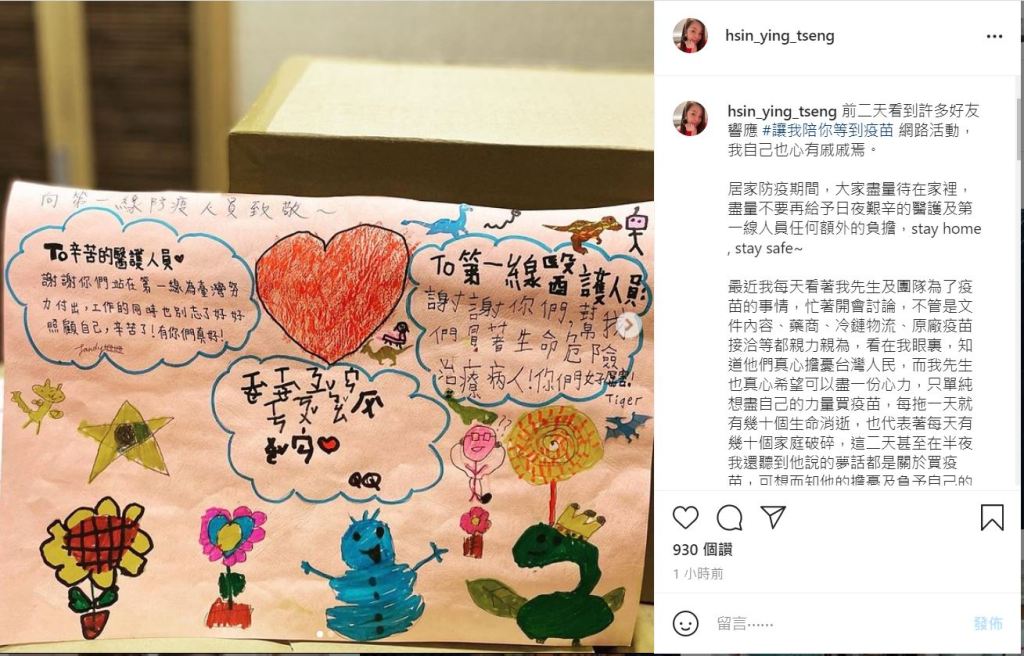 向第一線防疫人員致敬～
To辛苦的醫護人員♥
謝謝你們站在第一線為臺灣努
力付出,工作的同時也別忘了好好
照顧自己,辛苦了!有你們真好!
To第一線醫護人員
謝謝你們,幫我
們冒著生命危險
治療病人!你們好厲害!
Tiger
QQ
??
hsin_ying_tseng
hsin_ying_tseng 前二天看到許多好友
響應 #讓我陪你等到疫苗 網路活動，
我自己也心有戚戚焉。
居家防疫期間，大家盡量待在家裡，
盡量不要再給予日夜艱辛的醫護及第
一線人員任何額外的負擔，stay home
, stay safe~
最近我每天看著我先生及團隊為了疫
苗的事情，忙著開會討論，不管是文
件內容、藥商、冷鏈物流、原廠疫苗
接洽等都親力親為，看在我眼裏，知
道他們真心擔憂台灣人民，而我先生
也真心希望可以盡一份心力，只單純
想盡自己的力量買疫苗，每拖一天就
有幾十個生命消逝，也代表著每天有
幾十個家庭破碎，這二天甚至在半夜
我還聽到他說的夢話都是關於買疫
苗，可想而知他的擔憂及負予自己的
930 個讚
1 小時前
留言⋯⋯
發佈